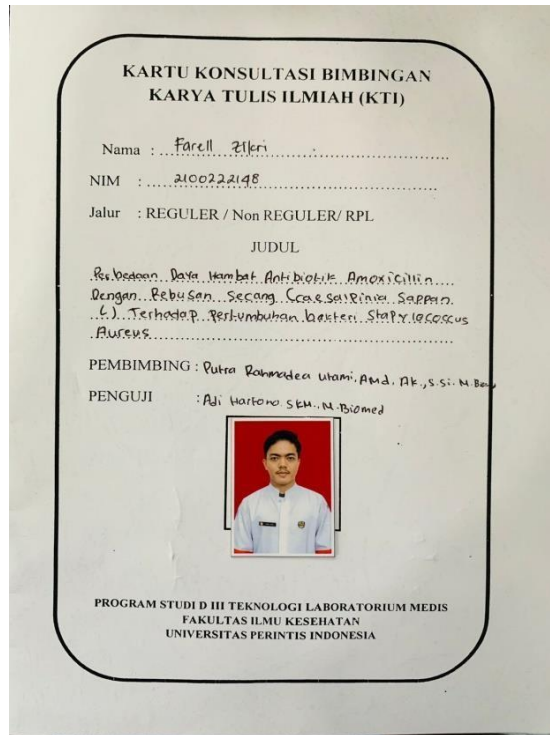 KARTU KONSULTASI BIMBINGAN
KARYA TULIS ILMIAH (KTI)
Nama : Farell Zikri
NIM : 2100222148
Jalur : REGULER / Non REGULER/ RPL
JUDUL
Perbedaan Daya Hambat Antibiotik Amoxicillin
Dengan Rebusan Secang (caesalpinia Sappan
L) Terhadap Pertumbuhan bakteri Stapylococcus
Aureus
PEMBIMBING : Putra Rahmadea Utami, AMd. Ak., S.Si. M.Bio
PENGUJI : Adi Hartono. SKM., M.Biomed
PROGRAM STUDI D III TEKNOLOGI LABORATORIUM MEDIS
FAKULTAS ILMU KESEHATAN
UNIVERSITAS PERINTIS INDONESIA